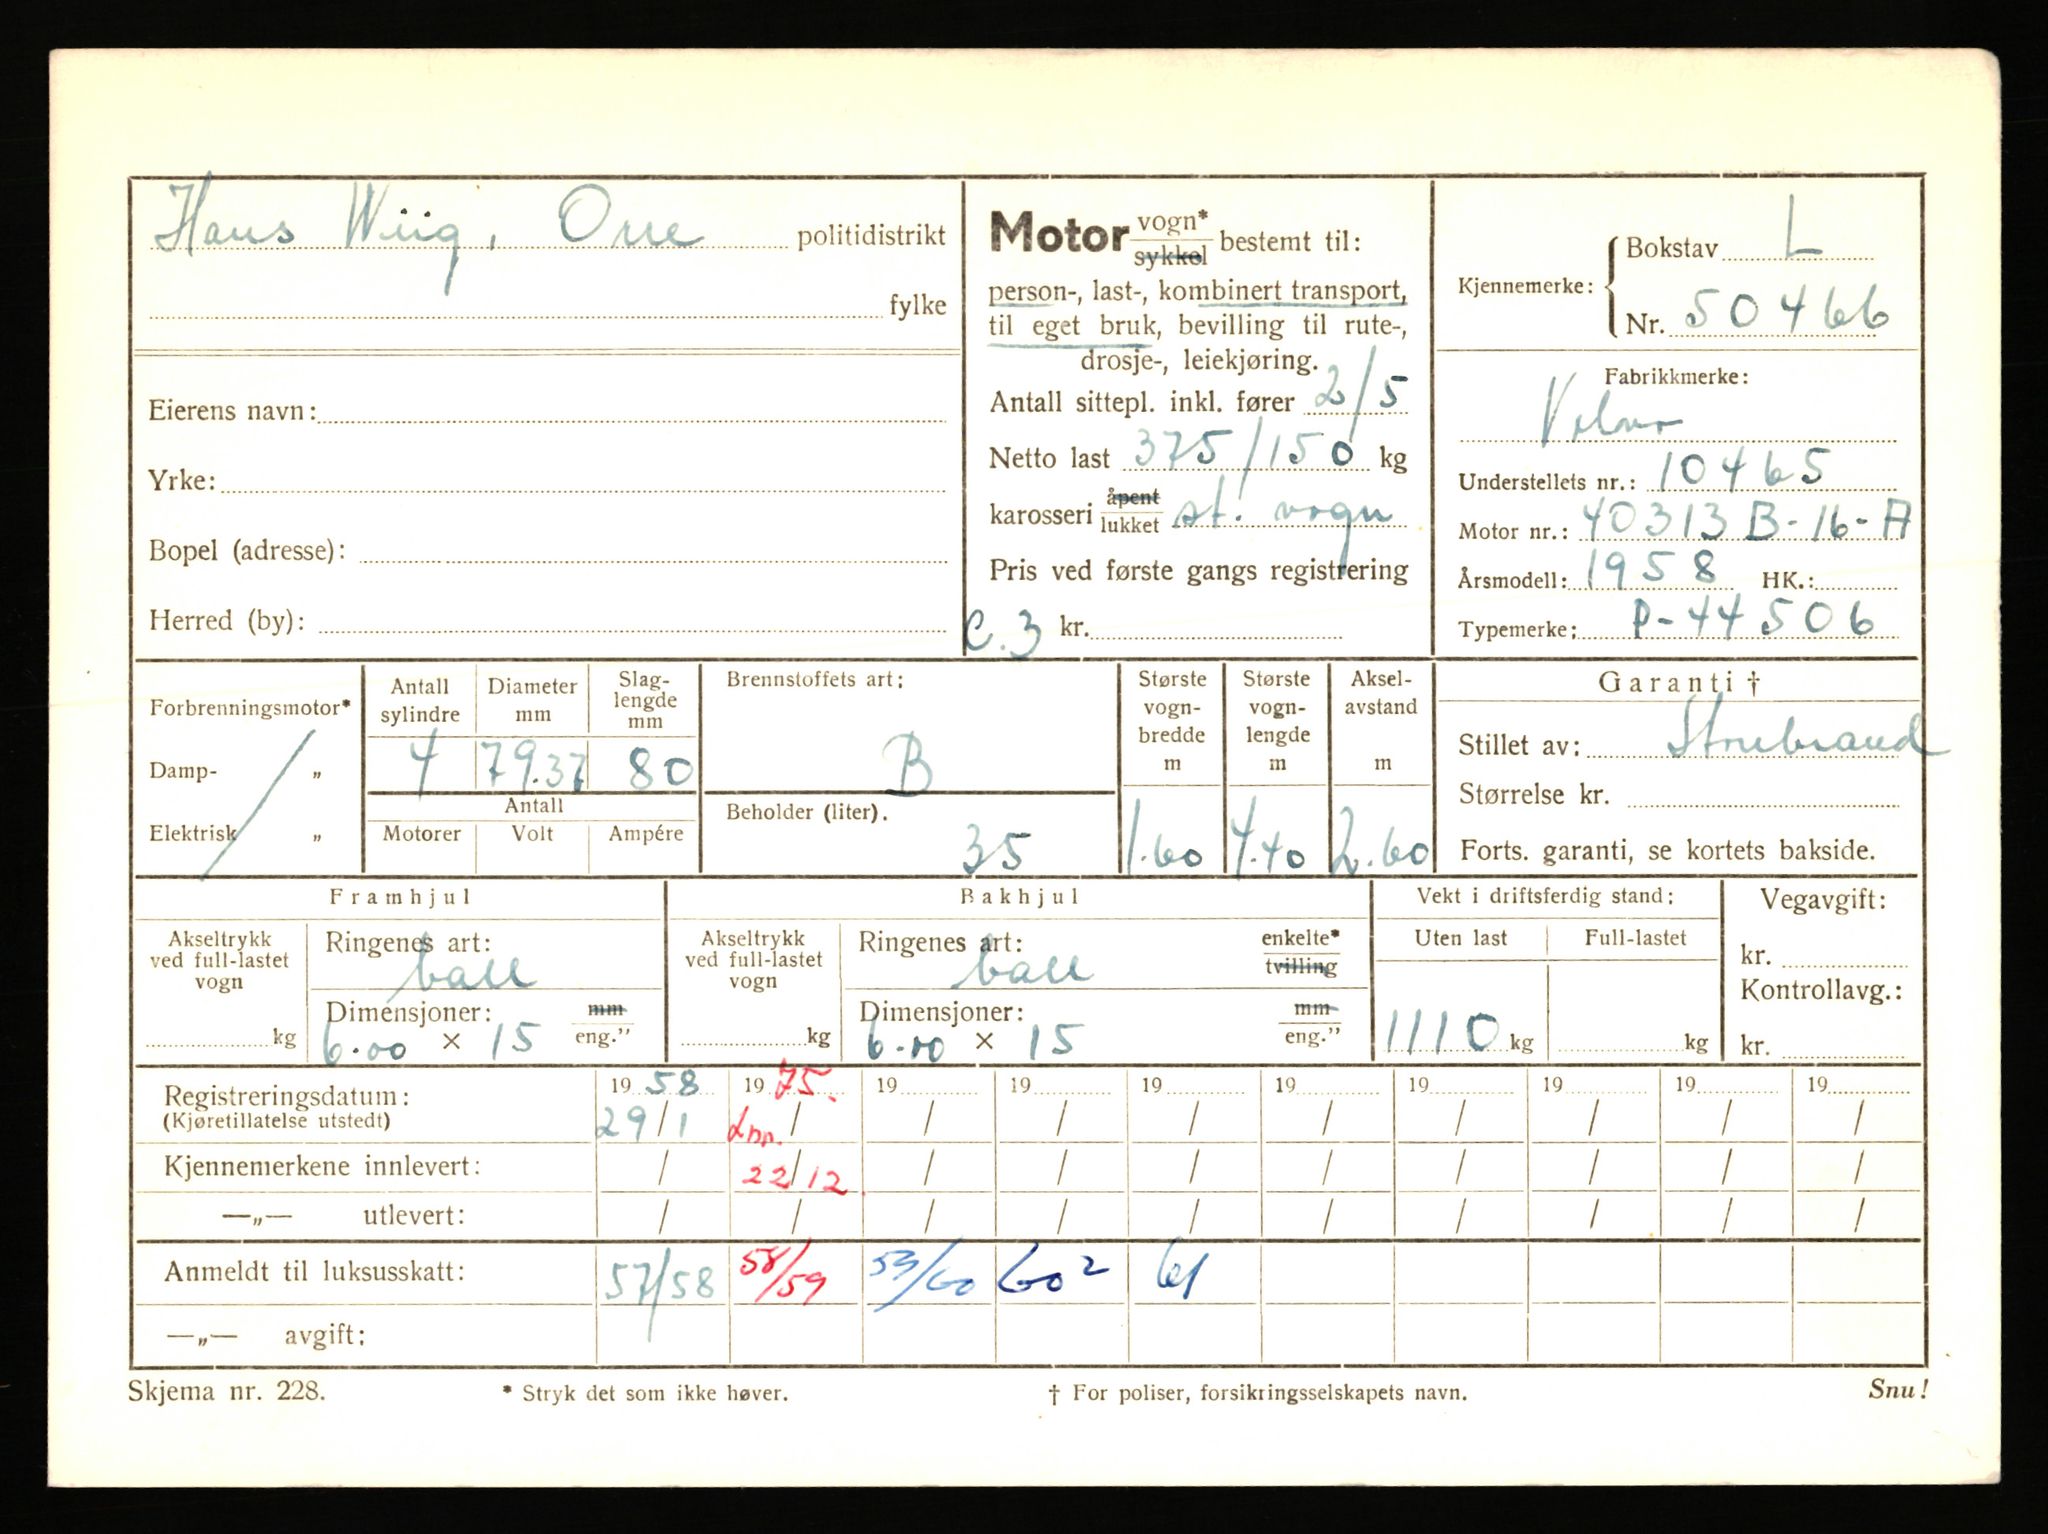 Hans Wiig, Orre politidistrikt
fylke
Eierens navn:
Yrke:
Bopel (adresse):
Herred (by):
Motor vogn* sykkel bestemt til:
person-, last-, kombinert transport,
til eget bruk, bevilling til rute-,
drosje-, leiekjøring.
Antall sittepl. inkl. fører 2/5
Netto last 375/150 kg
karosseri åpent lukket st. vogn
Pris ved første gangs registrering
C.3 kr.
Kjennemerke: Bokstav L
Nr. 50466
Fabrikkmerke:
Volvo
Understellets nr.: 10465
Motor nr.: 40313 B-16-A
Årsmodell: 1958 HK.:
Typemerke: P-44506
Forbrenningsmotor*
Damp- „
Elektrisk „
Antall sylindre Diameter mm Slag-lengde mm
4 79.37 80
Antall
Motorer Volt Ampére
Brennstoffets art:
B
Beholder (liter).
35
Største vogn-bredde m
1.60
Største vogn-lengde m
4.40
Aksel-avstand m
2.60
Garanti †
Stillet av: Storebrand
Størrelse kr.
Forts. garanti, se kortets bakside.
Framhjul
Akseltrykk ved full-lastet vogn
kg
Ringenes art:
ball
Dimensjoner: mm
6.00 × 15 eng.”
Bakhjul
Akseltrykk ved full-lastet vogn
kg
Ringenes art: enkelte*
ball tvilling
Dimensjoner: mm
6.00 × 15 eng.”
Vekt i driftsferdig stand:
Uten last Full-lastet
1110 kg kg
Vegavgift:
kr.
Kontrollavg.:
kr.
Registreringsdatum: 19 58 19 75. 19 19 19 19 19 19 19 19
(Kjøretillatelse utstedt) 29/1 / / / / / / / / /
Kjennemerkene innlevert: / 22/12 / / / / / / / /
—„— utlevert: / / / / / / / / / /
Anmeldt til luksusskatt: 57/58 58/59 59/60 60 2 61
—„— avgift:
Skjema nr. 228. * Stryk det som ikke høver. † For poliser, forsikringsselskapets navn. Snu!